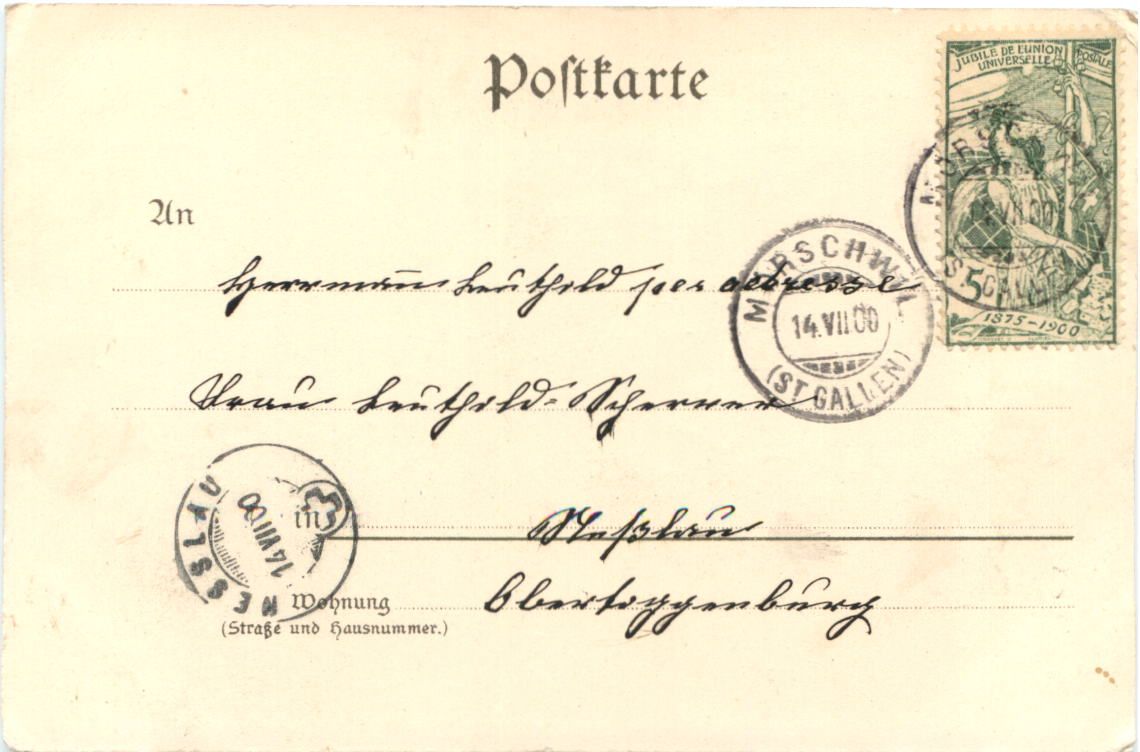 Postkarte
JUBILE DE L'UNION POSTALE
UNIVERSELLE
5
1875-1900
MÖRSCHWIL
14.VII.00
(ST. GALLEN)
MÖRSCHWIL
14.VII.00
(ST. GALLEN)
An
Herrmann Leuthold per adresse
Frau Leuthold-Scherrer
in Neßlau
NESSLAU
14 VII 00
Wohnung Obertoggenburg
(Straße und Hausnummer.)